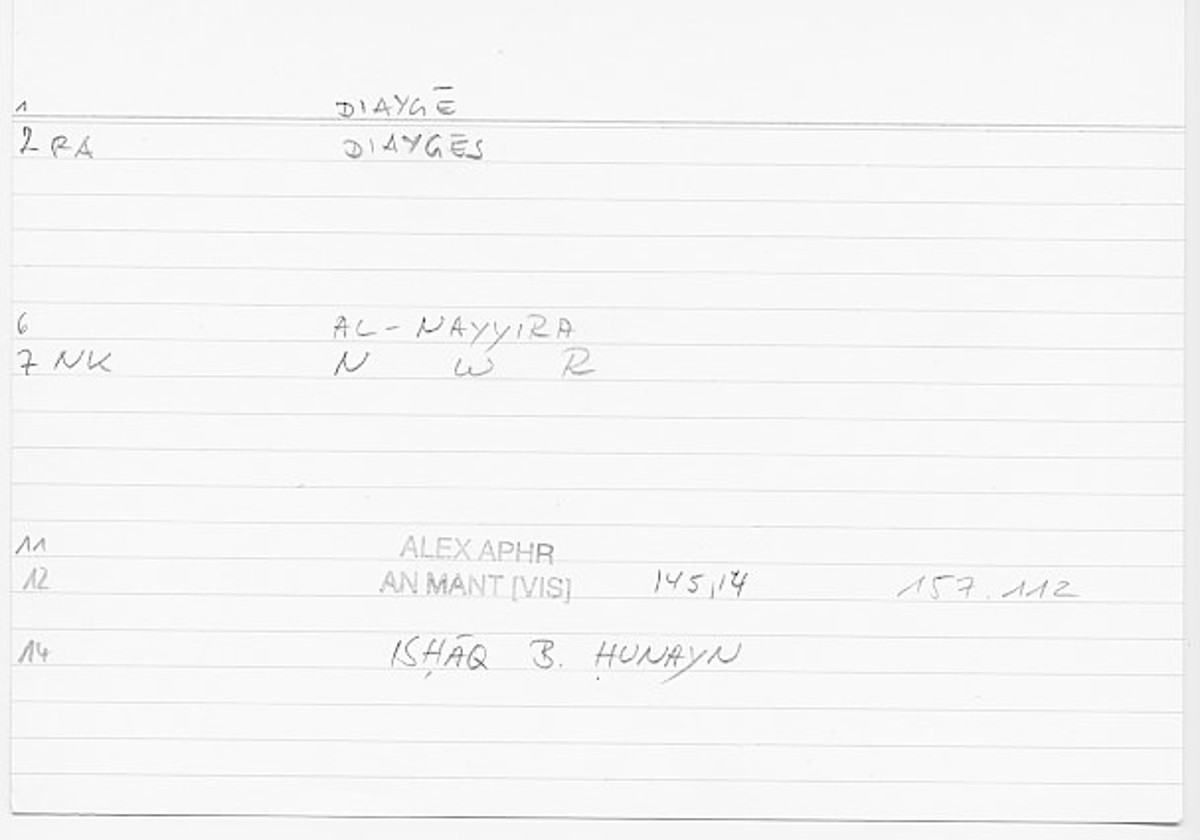 1 DIAYGĒ
2 RA DIAYGĒS
6 AL-NAYYIRA
7 NK N W R
11 ALEX APHR
12 AN MANT [VIS] 145,14 157.112
14 ISḤĀQ B. ḤUNAYN